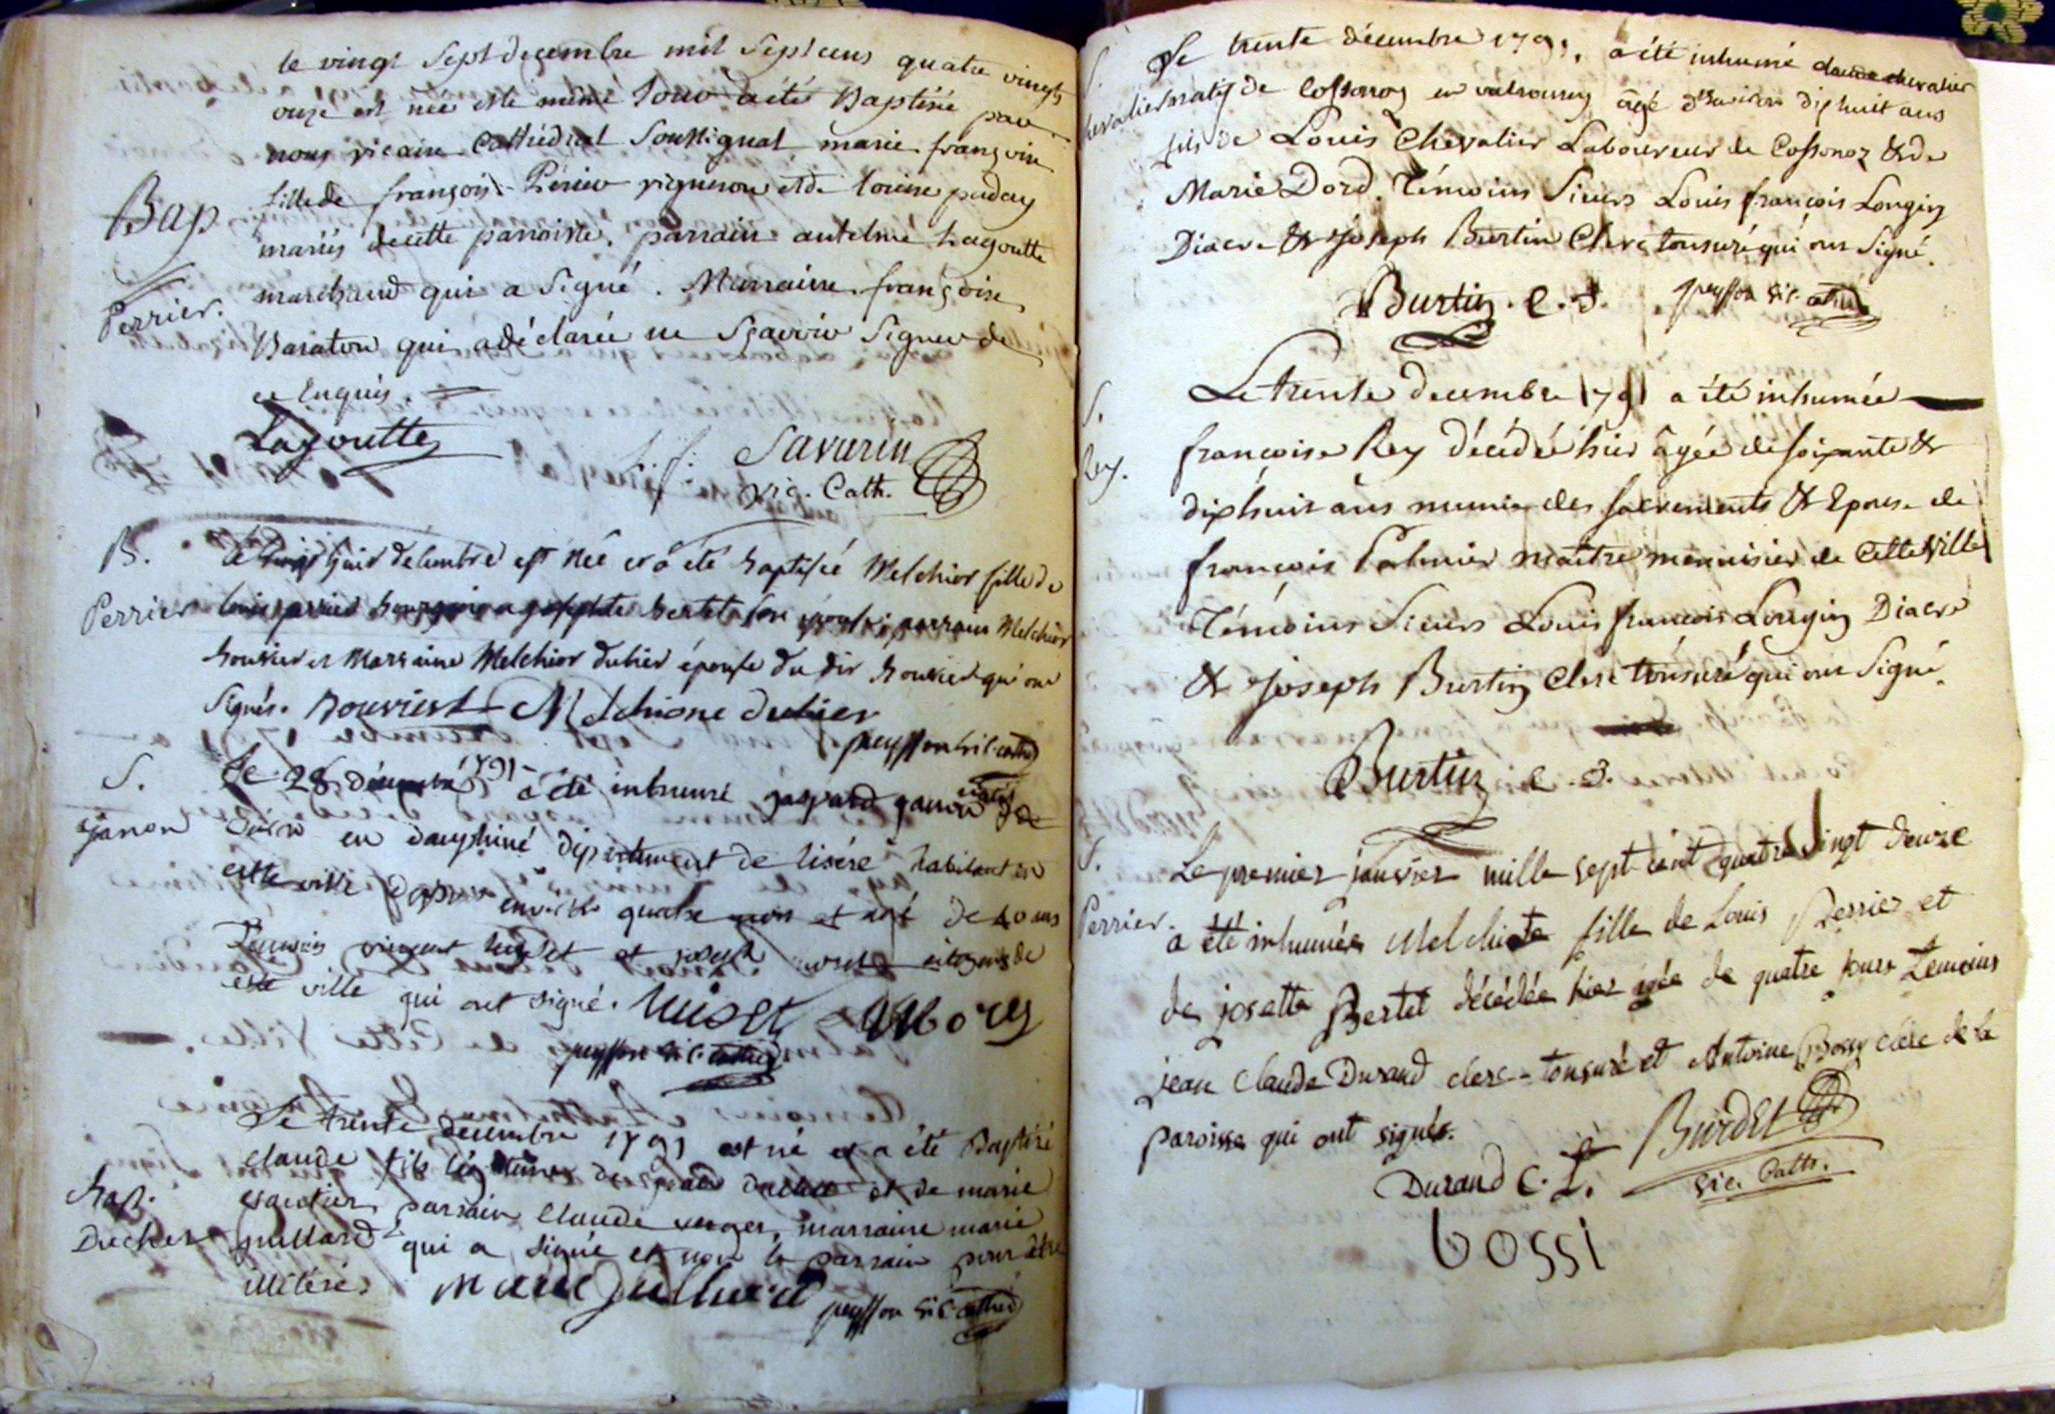 le vingt Sept decembre mil Sept cens quatre vingts
onze est née et le même Jour a été Baptisée par
nous vicaire Cathédral Soussigné marie françoise
Bap
fille de françois Périer vigneron et de louise puday
mariés de cette parroisse. parrain antelme Lagoutte
Perrier.
marchand qui a Signé. Marraine françoise
Baraton qui a déclarée ne Sçavoir Signer de
ce Enquis.
Lagoutte
Savarin
vic. Cath.
B.
Perrier
Le vingt huit décembre est née et a été baptisée Melchior fille de
louis perrier et josephte bertet son épouse; parrain Melchior
bouvier et Marraine Melchior dubier épouse du dit bouvier qui ont
Signés. bouvier Melchione dubier
peysson vic. cathed
S.
janon
Le 28 décembre 1791 a été inhumé gaspard janon natif de
en dauphiné département de lisére habitant en
cette ville depuis environ quatre mois et agé de 40 ans
Témoins vincent huset et joseph morel citoyens de
cette ville qui ont signé. huiset Morel
peysson vic. cathed
Bap.
Ducher
Le trente decembre 1791 est né et a été Baptisé
claude fils légitime de ducher et de marie
gautier, parrain Claude verger, marraine marie
juillard qui a signée et non le parrain pour être
illitéré.
marie juilliard
peysson vic. cathed
S.
chevalier
Le trente décembre 1791. a été inhumé claude chevalier
natif de Cossonoz en valromey âgé d'environ diphuit ans
fils de Louis Chevalier Laboureur de Cossonoz & de
Marie Dord. Témoins Sieurs Louis françois Longin
Diacre & Joseph Burtin Clerc tonsuré qui ont Signé.
Burtin. c. t. peysson vic. cath
S.
Rey.
Le trente decembre 1791 a été inhumée
françoise Rey décédée hier âgée de soixante &
diphuit ans munie des sacrements & Epouse de
françois Palmier maître menuisier de Cette Ville
Témoins Sieurs Louis françois Longin Diacre
& Joseph Burtin Clerc tonsuré qui ont Signé.
Burtin c. t.
S.
Perrier.
Le premier janvier mille sept cent quatre vingt douze
a été inhumée Melchiote fille de Louis Perrier et
de josette Bertet décédée hier agée de quatre jours Temoins
jean Claude Durand clerc-tonsuré et Antoine Bossy clerc de la
paroisse qui ont signés.
Durand C. T.
Burdet
vic. Cath.
bossi